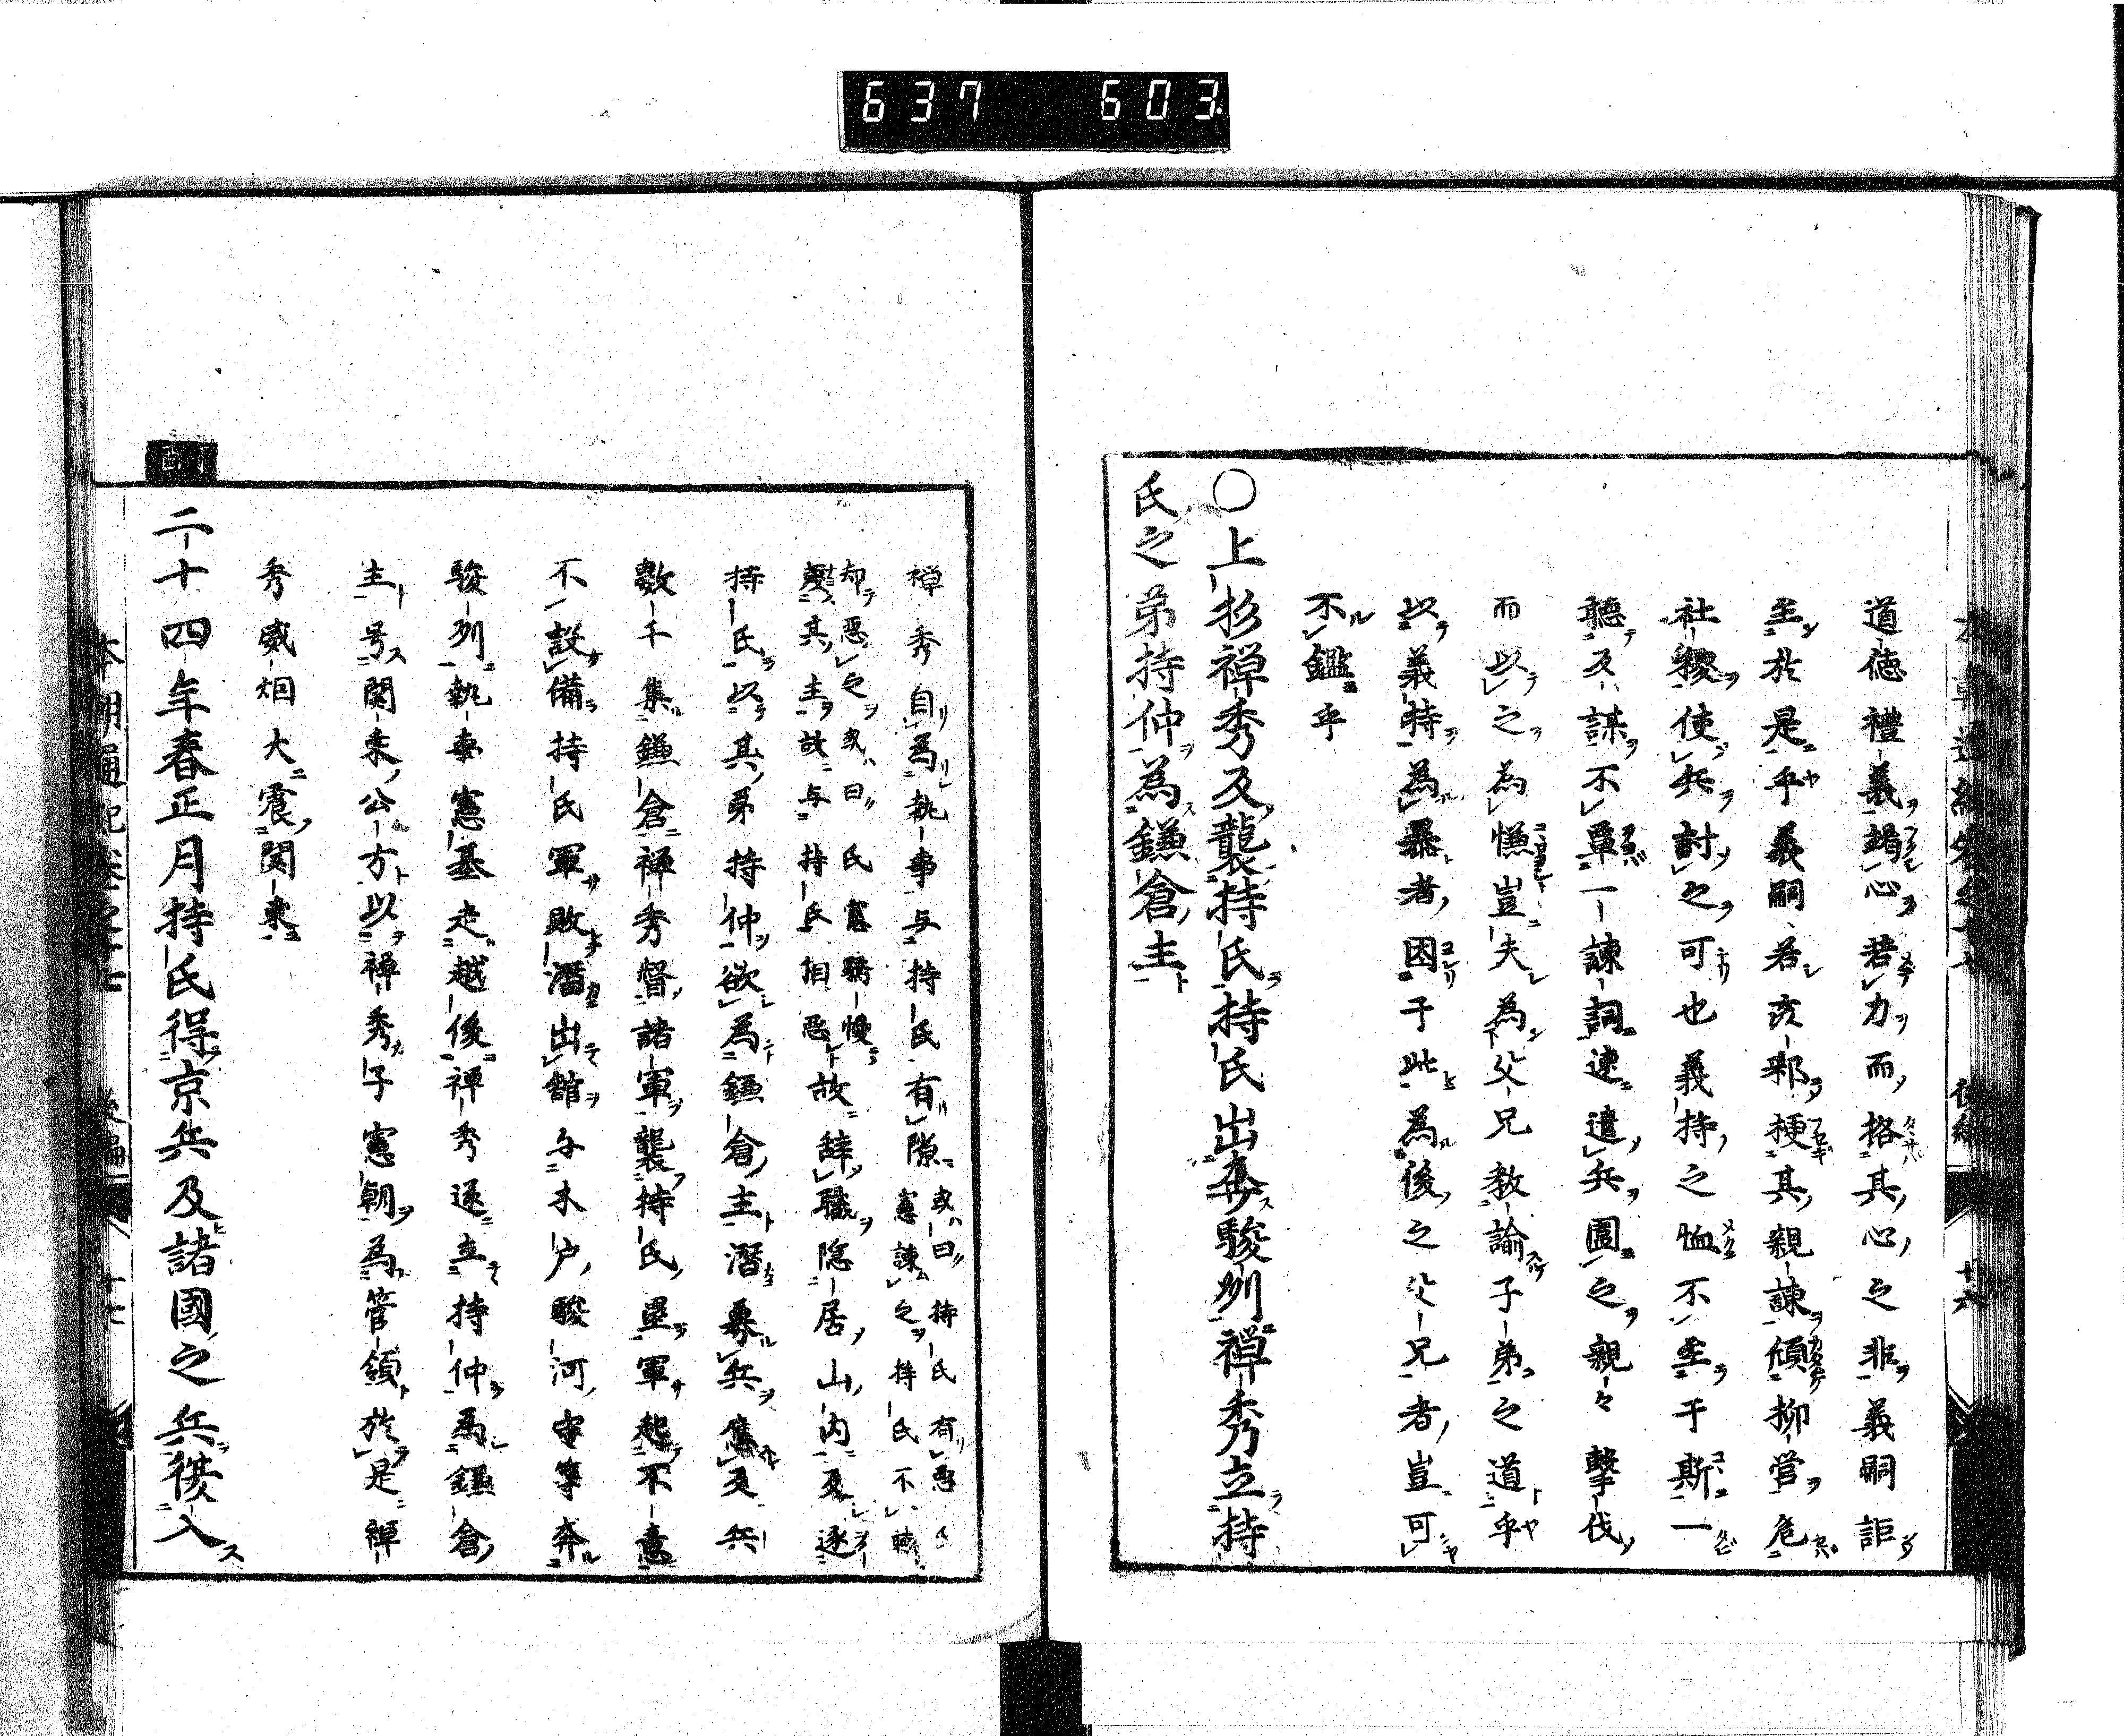 637 603
道德禮義竭心若力而格其心之非義嗣詎
至於是乎義嗣若亥邪梗其親諫傾柳營危
社稷使兵討之可也義持之恤不至于斯一
聽及謀不覃一諫詞速遣兵圍之親々擊伐
而以之為慊豈夫為父兄教諭子弟之道乎
以義持為暴者因于此為後之父兄者豈可
不鑑乎
○上杉禅秀反襲持氏持氏出奔駿州禅秀立持
氏之弟持仲為鎌倉主
禅秀自為執事与持氏有隙
或曰持氏有
憲諫之持氏不聽
却惡之或曰氏憲驕慢
其主故与持氏相惡
故辞職隠居山内及逐
持氏以其弟持仲欲為鎌倉主潛募兵應及兵
數千集鎌倉禅秀督諸軍襲持氏塁軍起不意
不設備持氏軍敗潛出舘与木戸駿河守等奔
駿列執事憲基走越後禅秀遂立持仲為鎌倉
主号関東公方以禅秀子憲朝為管領於是禅
秀威烟大震関東
二十四年春正月持氏得京兵及諸國之兵復入
本朝通紀卷之十七 後編 十七